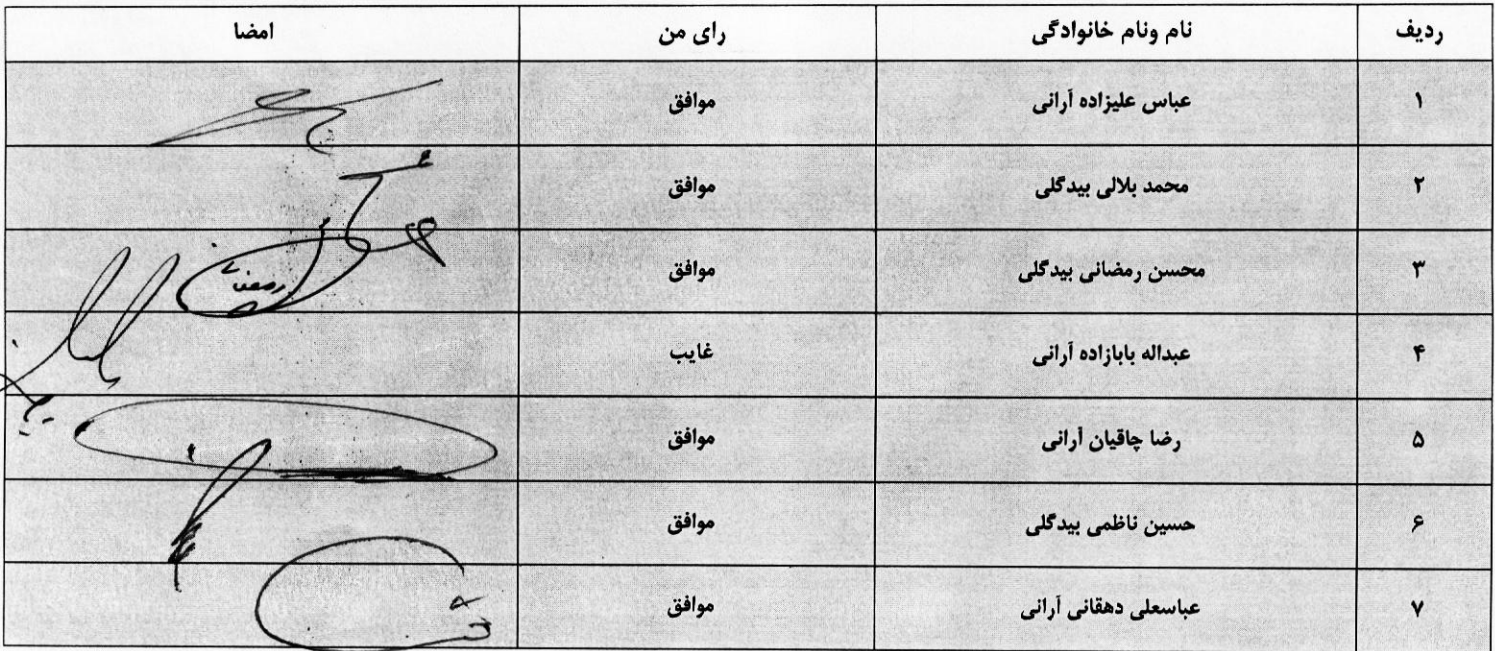 ردیف نام ونام خانوادگی رای من امضا
۱ عباس علیزاده آرانی موافق
۲ محمد بلالی بیدگلی موافق
۳ محسن رمضانی بیدگلی موافق
۴ عبداله بابازاده آرانی غایب
۵ رضا چاقیان آرانی موافق
۶ حسین ناظمی بیدگلی موافق
۷ عباسعلی دهقانی آرانی موافق